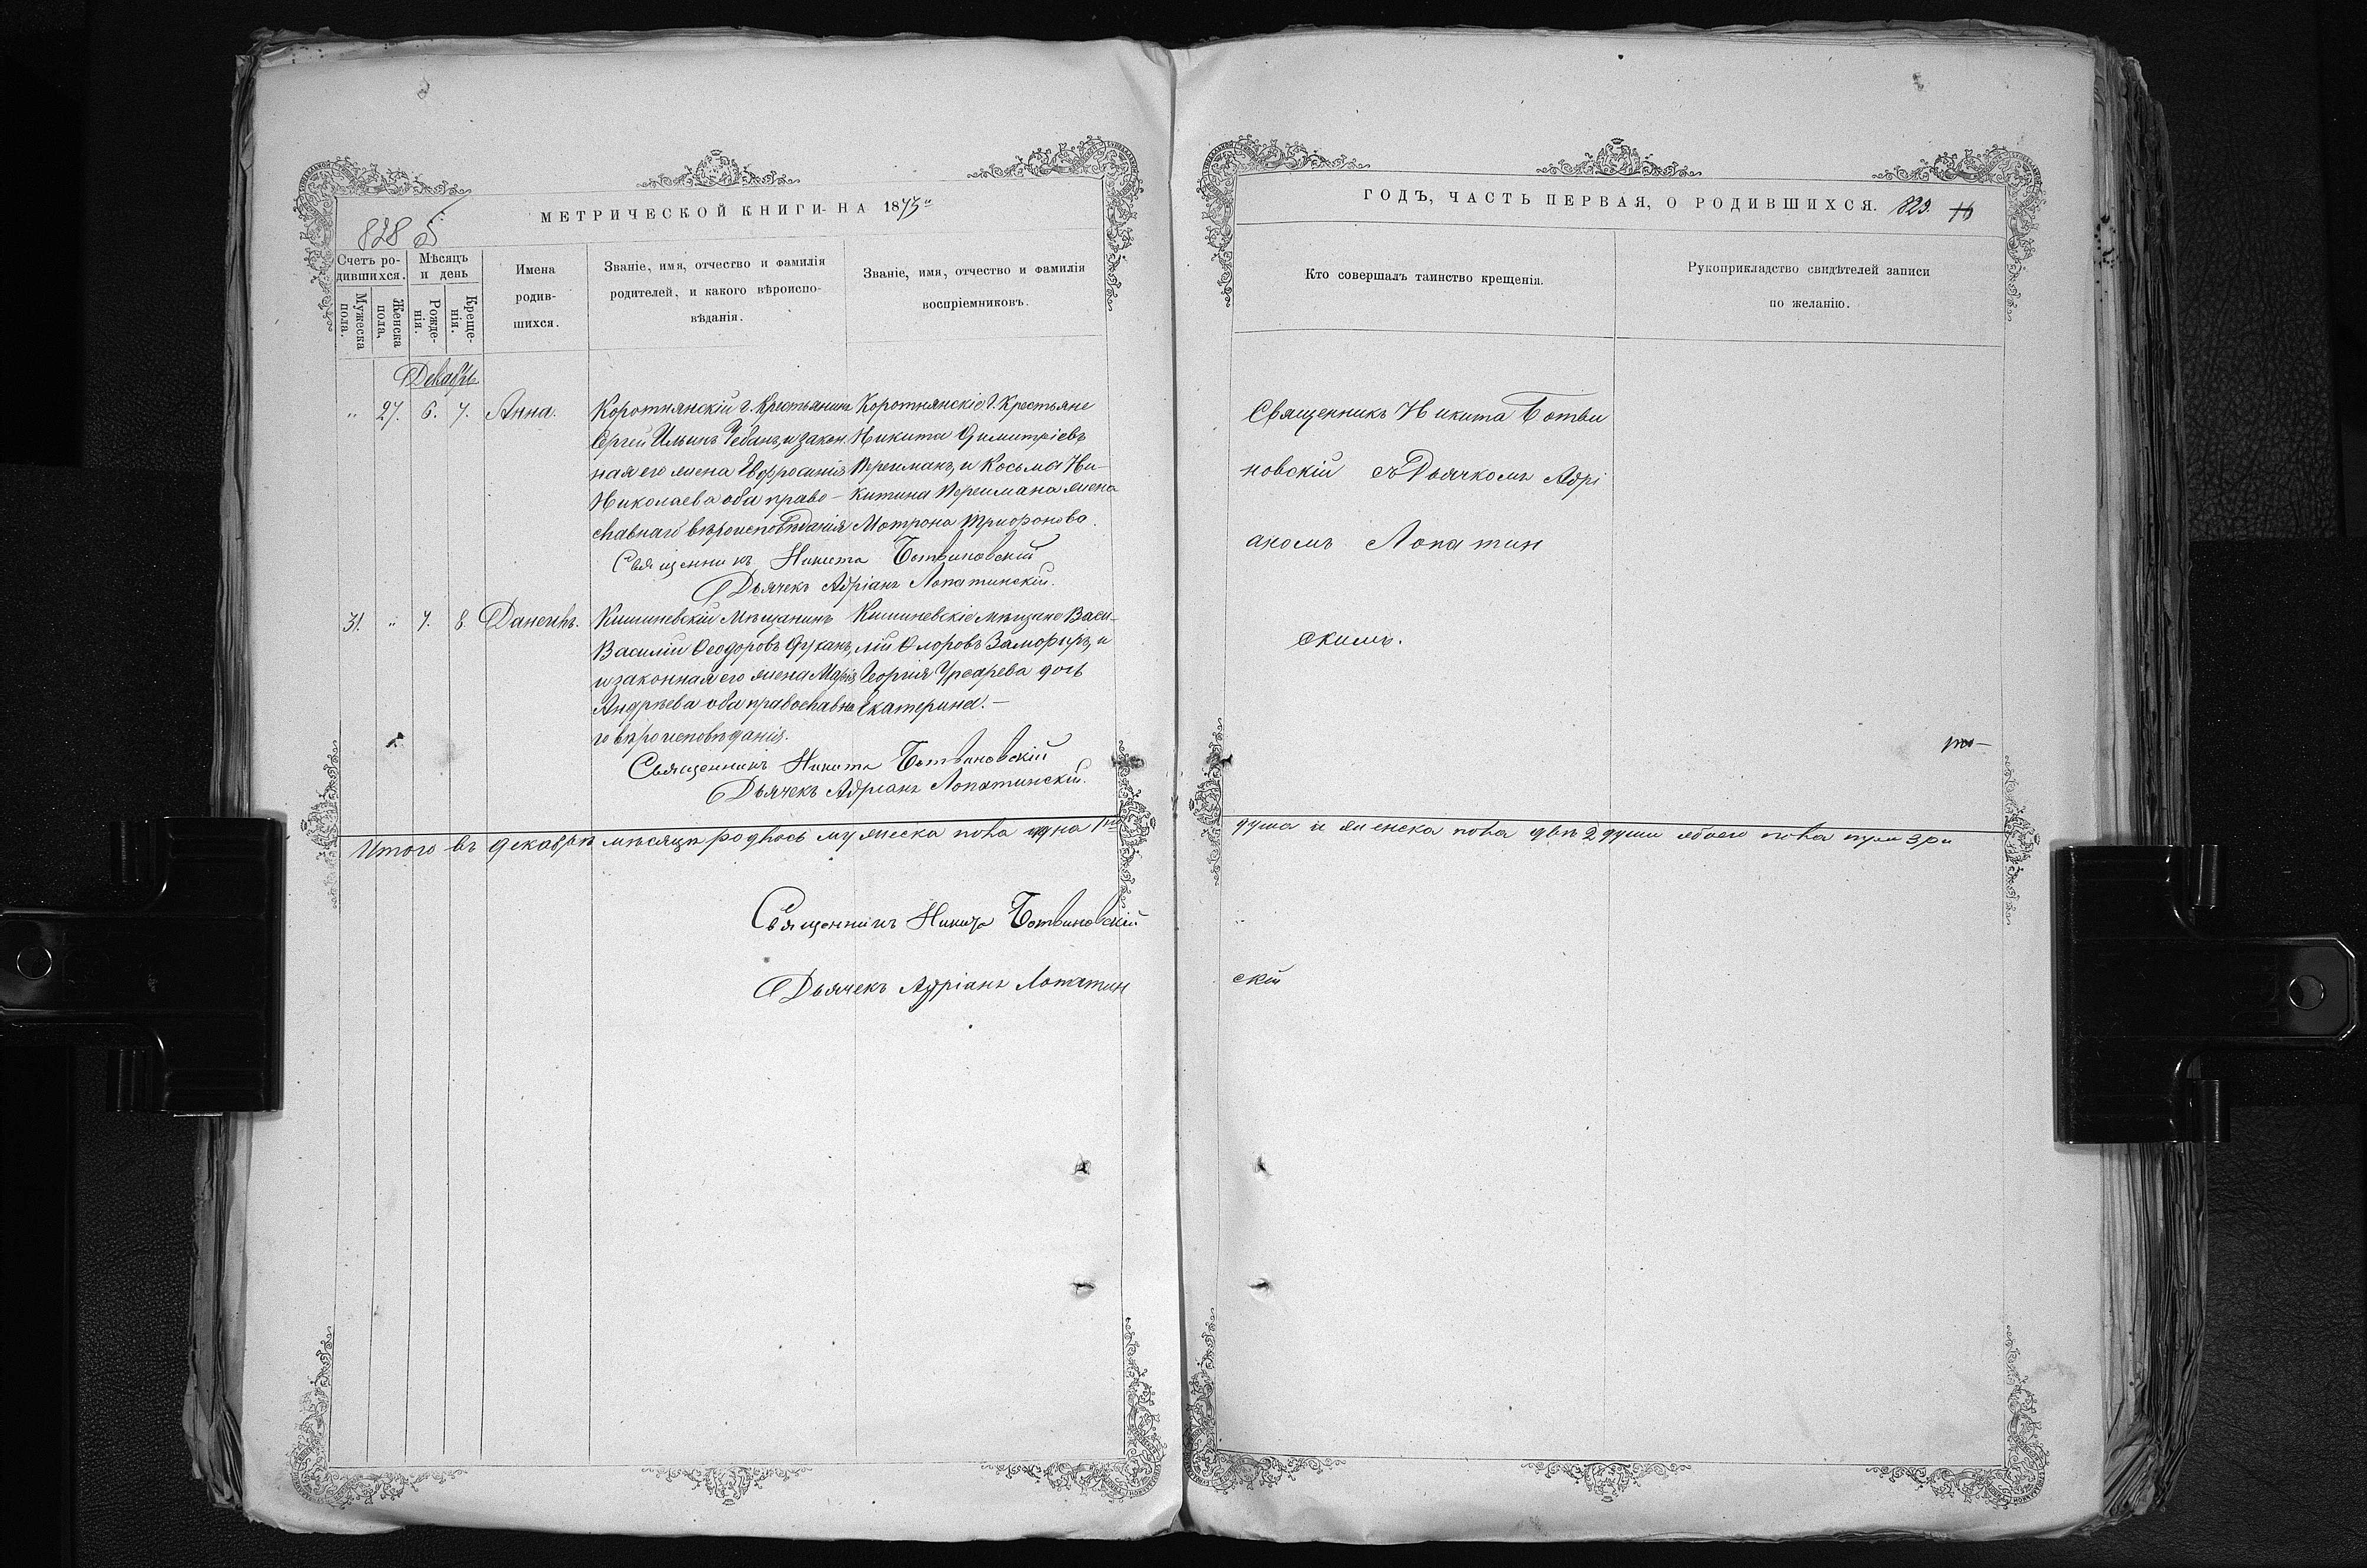 МЕТРИЧЕСКОЙ КНИГИ НА 1875
828
Счетъ ро-
дившихся.
Мѣсяцъ
и день
Мужеска
пола.
Женска
пола,
Рожде-
нія.
Креще-
нія.
Имена
родив-
шихся.
Званіе, имя, отчество и фамилія
родителей, и какого вѣроиспо-
вѣданія.
Званіе, имя, отчество и фамилія
воспріемниковъ.
Декабрь
" 27. 6. 7. Анна.
Коротнянскій Крестьянинъ
Сергей Ильинъ Чебанъ, и закон
ная его жена Евфросинія
Николаева оба право-
славнаго вѣроисповѣданія
Коротнянскіе Крестьяне
Никита Димитріевъ
Перетманъ, и Косьма Ни-
китина Перетмана жена
Мотрона Трифонова.
Священникъ Никита Ботвиновскій
Дьячекъ Адріанъ Лопатинскій.
31. " 7. 8. Даніилъ.
Кишиневскій Мѣщанинъ
Василій Ѳеодоровъ Фуканъ,
и законная его жена Марія
Андрѣева оба православна
го вѣроисповѣданія.
Кишиневскіе мѣщане Васи-
лій Флоровъ Замфиръ, и
Георгія Урсарева дочь
Екатерина. —
Священникъ Никита Ботвиновскій
Дьячекъ Адріанъ Лопатинскій.
Итого въ декабрѣ мѣсяцѣ родилось мужеска пола одна 1
Священникъ Никита Ботвиновскій
Дьячекъ Адріанъ Лопатин
ГОДЪ, ЧАСТЬ ПЕРВАЯ, О РОДИВШИХСЯ. 829.
Кто совершалъ таинство крещенія.
Рукоприкладство свидѣтелей записи
по желанію.
Священникъ Никита Ботви
новскій съ Дьячкомъ Адрі
аномъ Лопатин
скимъ.
душа и женска пола двѣ 2 души обоего пола три 3
скій